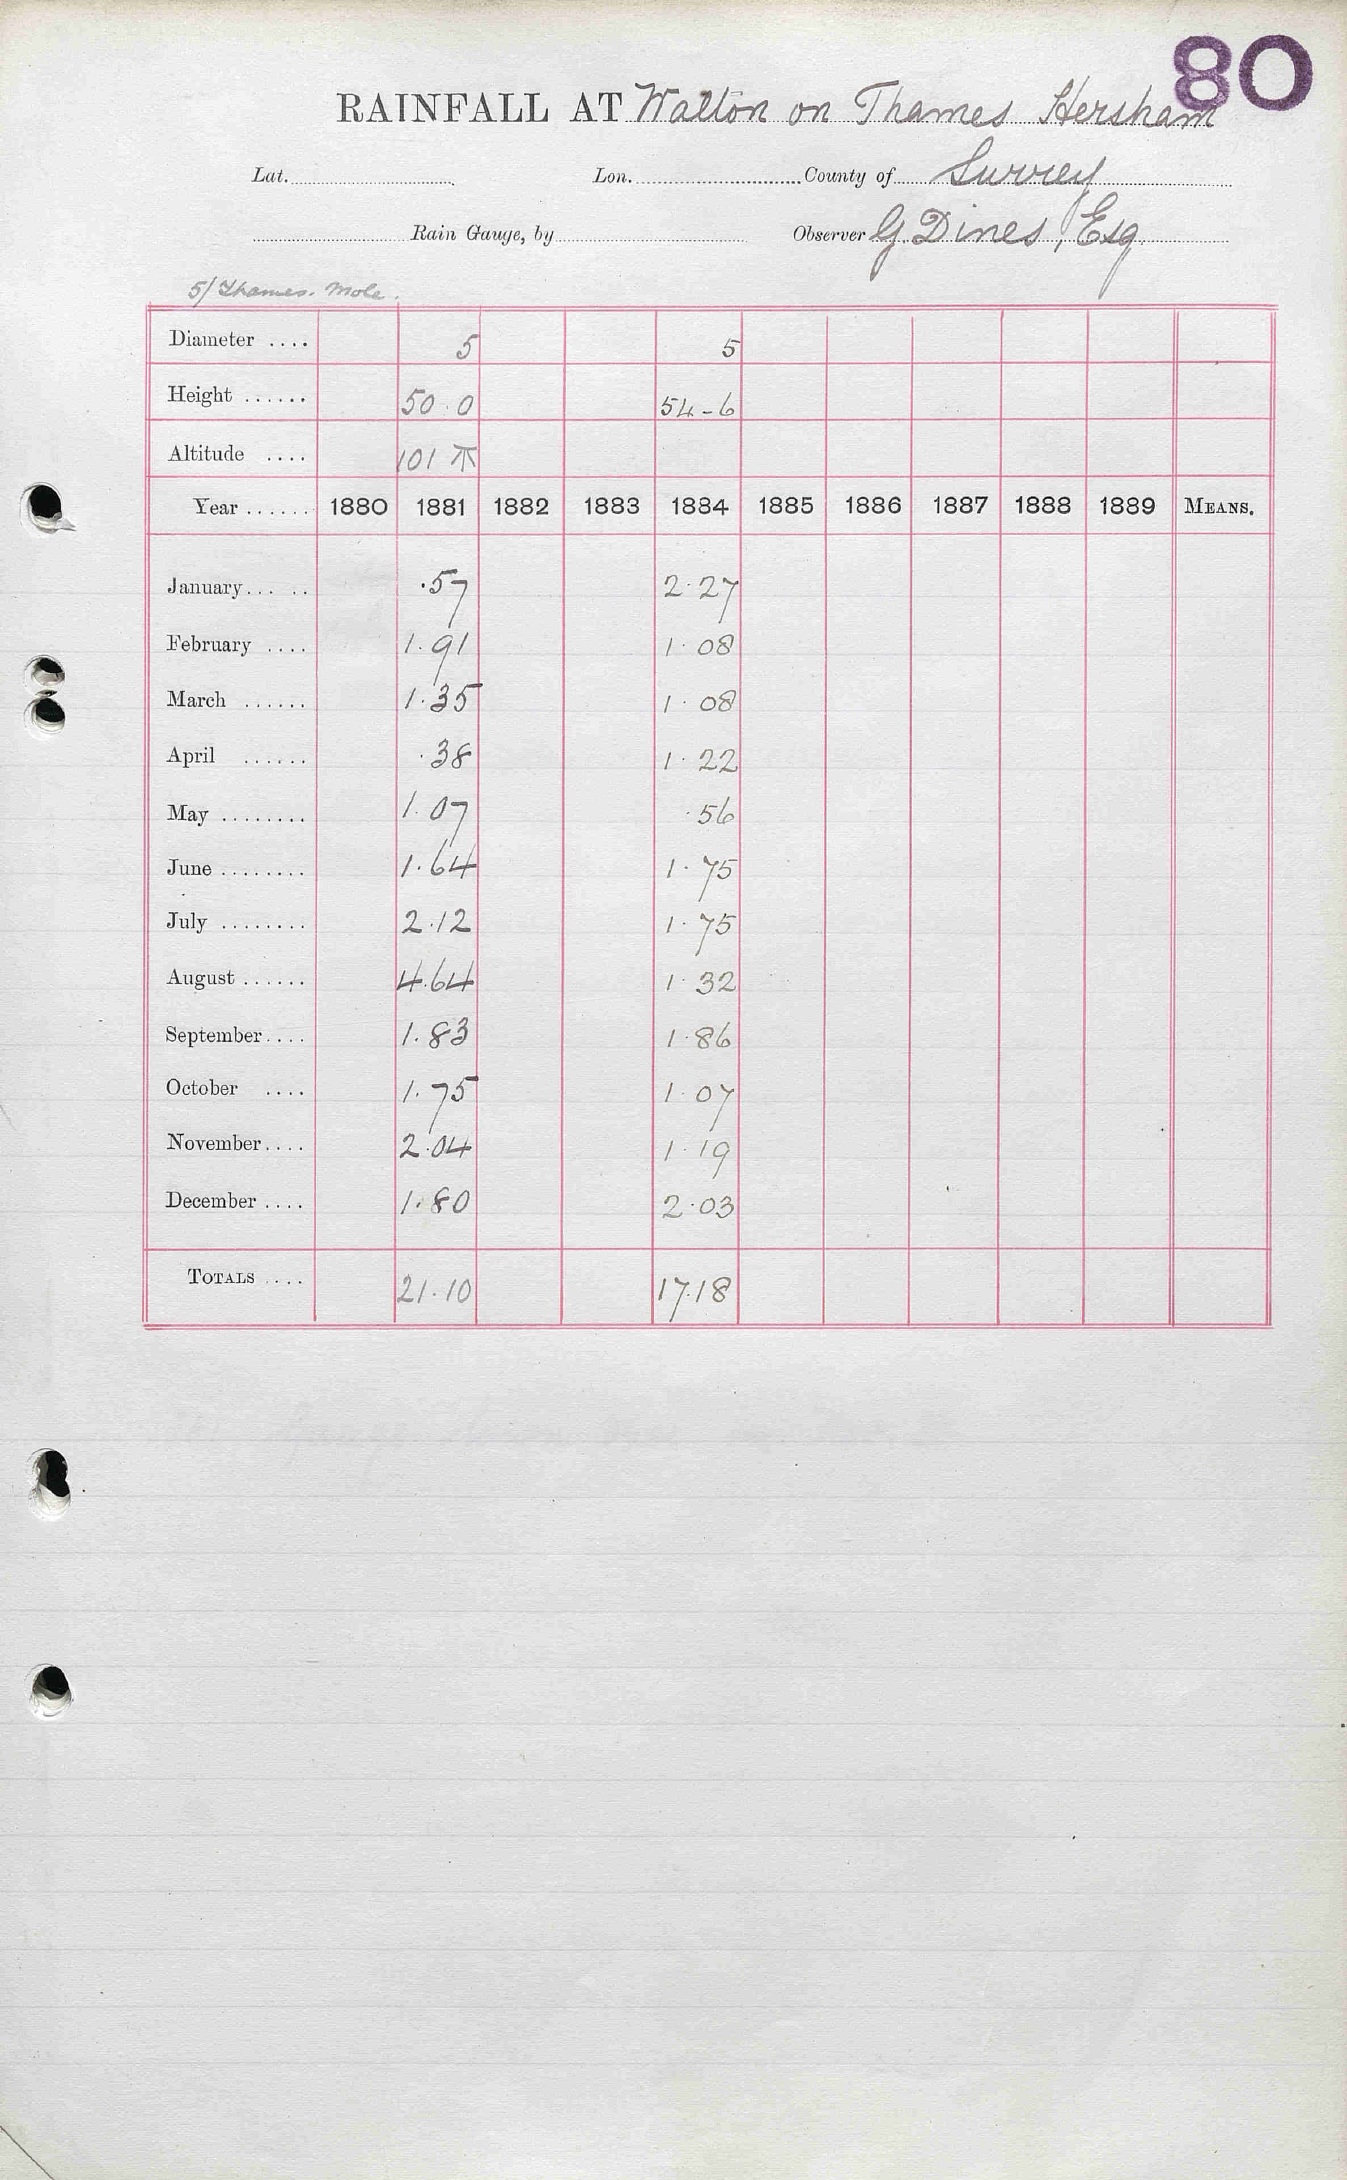 80
RAINFALL AT Walton on Thames Hersham
Lat. Lon. County of Surrey
Rain Gauge, by Observer G. Dines, Esq.
5/ Thames. Mole.
Diameter .... 5 5
Height ...... 50 . 0 54-6
Altitude .... 101
Year ...... 1880 1881 1882 1883 1884 1885 1886 1887 1888 1889 MEANS.
January... .. .57 2.27
February .... 1.91 1.08
March ...... 1.35 1.08
April ...... .38 1.22
May ........ 1.07 .56
June ........ 1.64 1.75
July ........ 2.12 1.75
August ...... 4.64 1.32
September.... 1.83 1.86
October .... 1.75 1.07
November.... 2.04 1.19
December .... 1.80 2.03
TOTALS .... 21.10 17.18